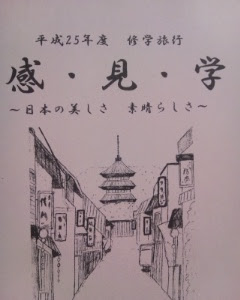 平成25年度 修学旅行
感・見・学
～日本の美しさ 素晴らしさ～